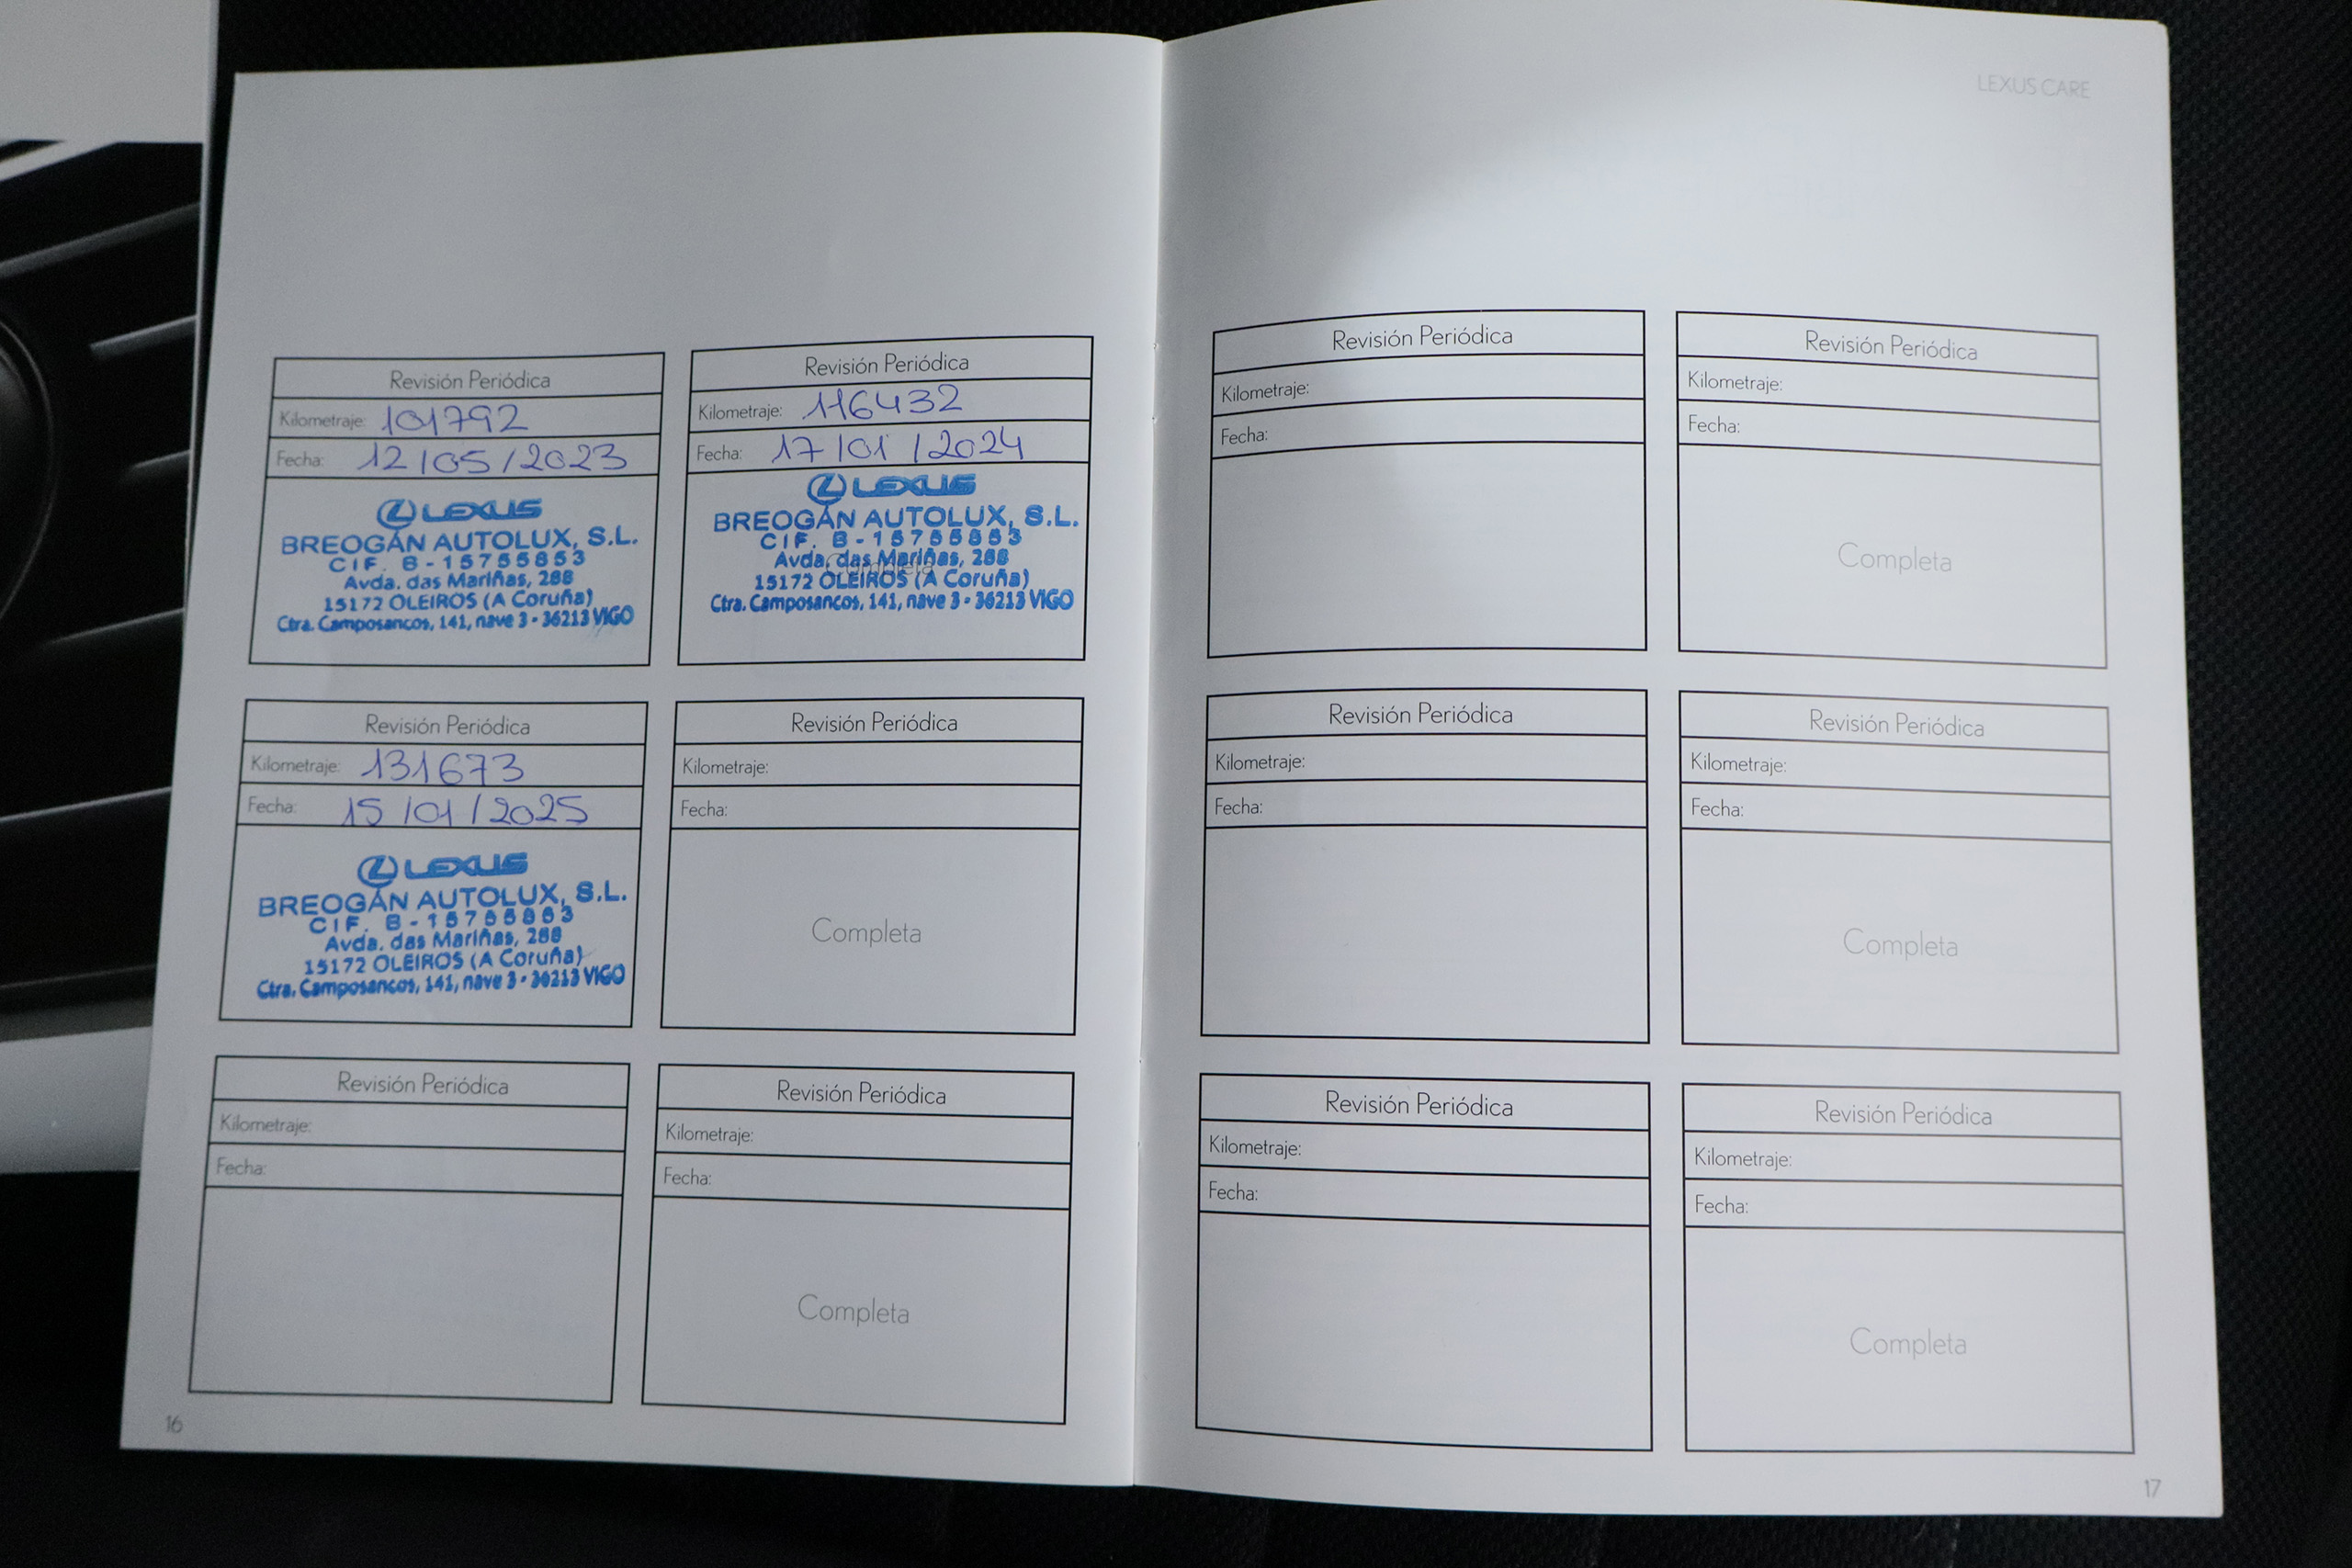 Revisión Periódica
Kilometraje: 101792
Fecha: 12/05/2023
LEXUS
BREOGÁN AUTOLUX, S.L.
CIF. B-15755853
Avda. das Mariñas, 288
15172 OLEIROS (A Coruña)
Ctra. Camposancos, 141, nave 3 - 36213 VIGO
Revisión Periódica
Kilometraje: 116432
Fecha: 17/01/2024
LEXUS
BREOGÁN AUTOLUX, S.L.
CIF. B-15755853
Avda. das Mariñas, 288
Completa
15172 OLEIROS (A Coruña)
Ctra. Camposancos, 141, nave 3 - 36213 VIGO
Revisión Periódica
Kilometraje: 131673
Fecha: 15/01/2025
LEXUS
BREOGÁN AUTOLUX, S.L.
CIF. B-15755853
Avda. das Mariñas, 288
15172 OLEIROS (A Coruña)
Ctra. Camposancos, 141, nave 3 - 36213 VIGO
Revisión Periódica
Kilometraje:
Fecha:
Completa
Revisión Periódica
Kilometraje:
Fecha:
Revisión Periódica
Kilometraje:
Fecha:
Completa
16
LEXUS CARE
Revisión Periódica
Kilometraje:
Fecha:
Revisión Periódica
Kilometraje:
Fecha:
Completa
Revisión Periódica
Kilometraje:
Fecha:
Revisión Periódica
Kilometraje:
Fecha:
Completa
Revisión Periódica
Kilometraje:
Fecha:
Revisión Periódica
Kilometraje:
Fecha:
Completa
17